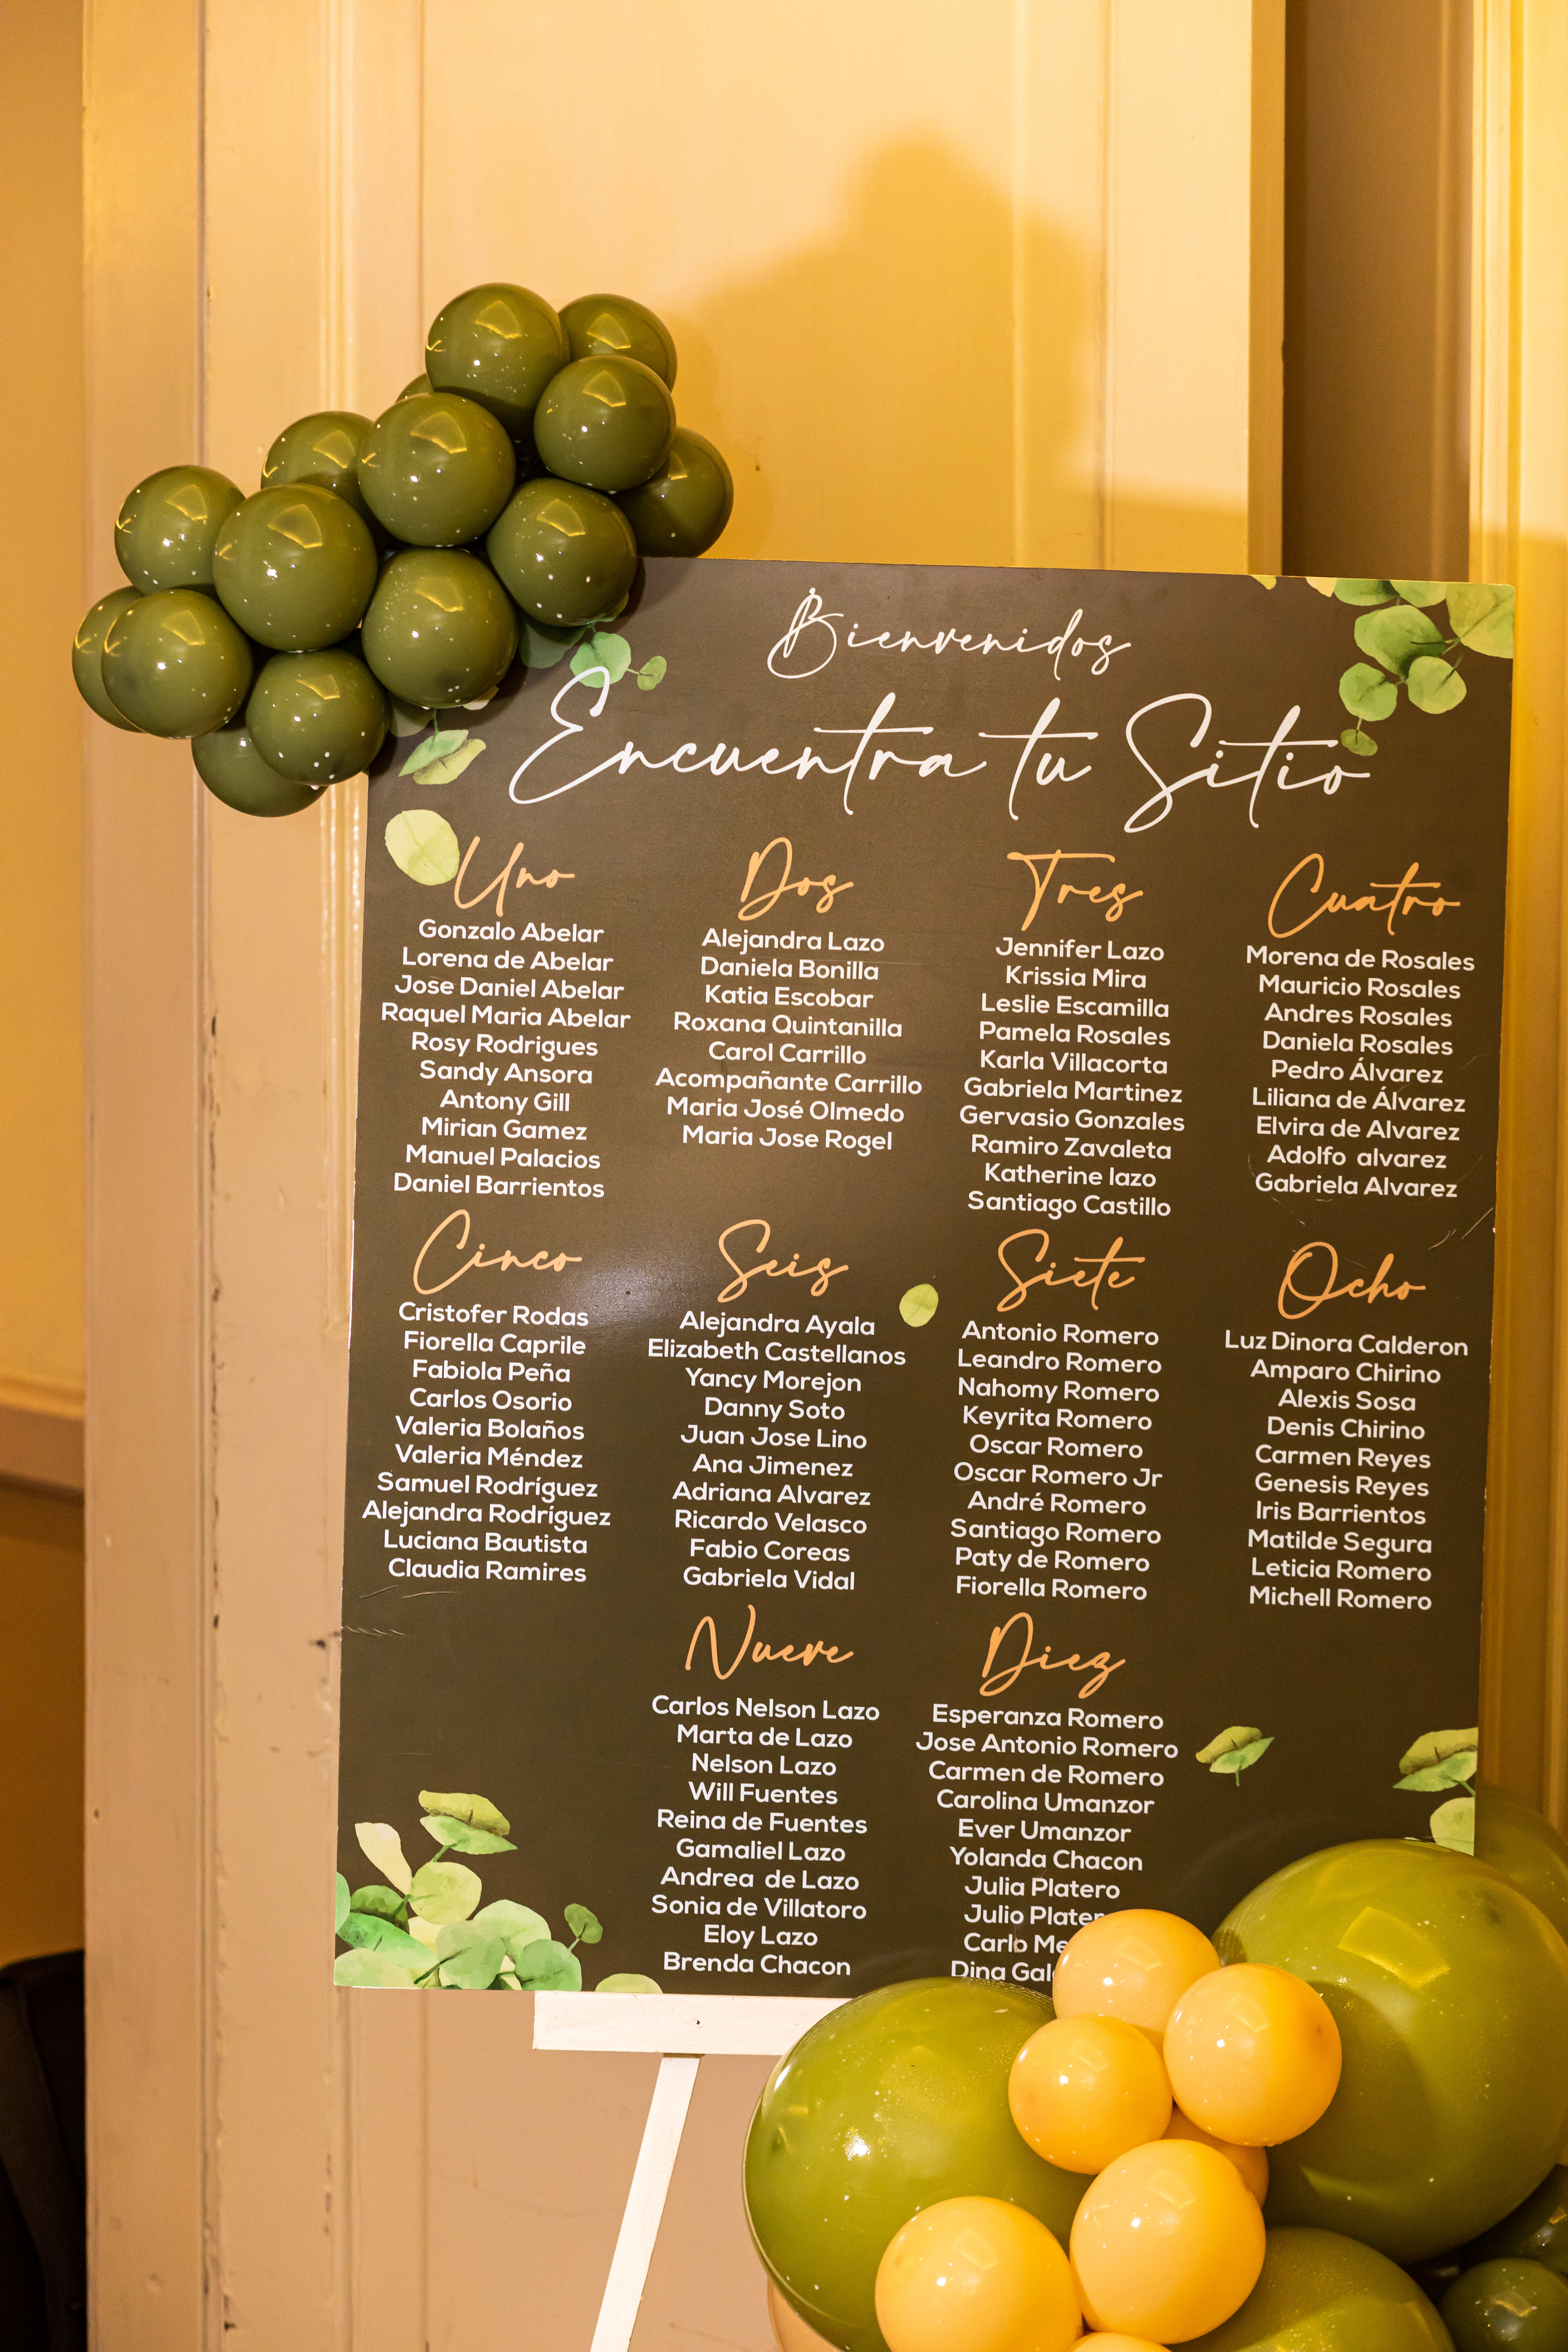 Bienvenidos
Encuentra tu Sitio
Uno
Gonzalo Abelar
Lorena de Abelar
Jose Daniel Abelar
Raquel Maria Abelar
Rosy Rodrigues
Sandy Ansora
Antony Gill
Mirian Gamez
Manuel Palacios
Daniel Barrientos
Dos
Alejandra Lazo
Daniela Bonilla
Katia Escobar
Roxana Quintanilla
Carol Carrillo
Acompañante Carrillo
Maria José Olmedo
Maria Jose Rogel
Tres
Jennifer Lazo
Krissia Mira
Leslie Escamilla
Pamela Rosales
Karla Villacorta
Gabriela Martinez
Gervasio Gonzales
Ramiro Zavaleta
Katherine lazo
Santiago Castillo
Cuatro
Morena de Rosales
Mauricio Rosales
Andres Rosales
Daniela Rosales
Pedro Álvarez
Liliana de Álvarez
Elvira de Alvarez
Adolfo alvarez
Gabriela Alvarez
Cinco
Cristofer Rodas
Fiorella Caprile
Fabiola Peña
Carlos Osorio
Valeria Bolaños
Valeria Méndez
Samuel Rodríguez
Alejandra Rodríguez
Luciana Bautista
Claudia Ramires
Seis
Alejandra Ayala
Elizabeth Castellanos
Yancy Morejon
Danny Soto
Juan Jose Lino
Ana Jimenez
Adriana Alvarez
Ricardo Velasco
Fabio Coreas
Gabriela Vidal
Siete
Antonio Romero
Leandro Romero
Nahomy Romero
Keyrita Romero
Oscar Romero
Oscar Romero Jr
André Romero
Santiago Romero
Paty de Romero
Fiorella Romero
Ocho
Luz Dinora Calderon
Amparo Chirino
Alexis Sosa
Denis Chirino
Carmen Reyes
Genesis Reyes
Iris Barrientos
Matilde Segura
Leticia Romero
Michell Romero
Nueve
Carlos Nelson Lazo
Marta de Lazo
Nelson Lazo
Will Fuentes
Reina de Fuentes
Gamaliel Lazo
Andrea de Lazo
Sonia de Villatoro
Eloy Lazo
Brenda Chacon
Diez
Esperanza Romero
Jose Antonio Romero
Carmen de Romero
Carolina Umanzor
Ever Umanzor
Yolanda Chacon
Julia Platero
Julio
Carlo
Dina